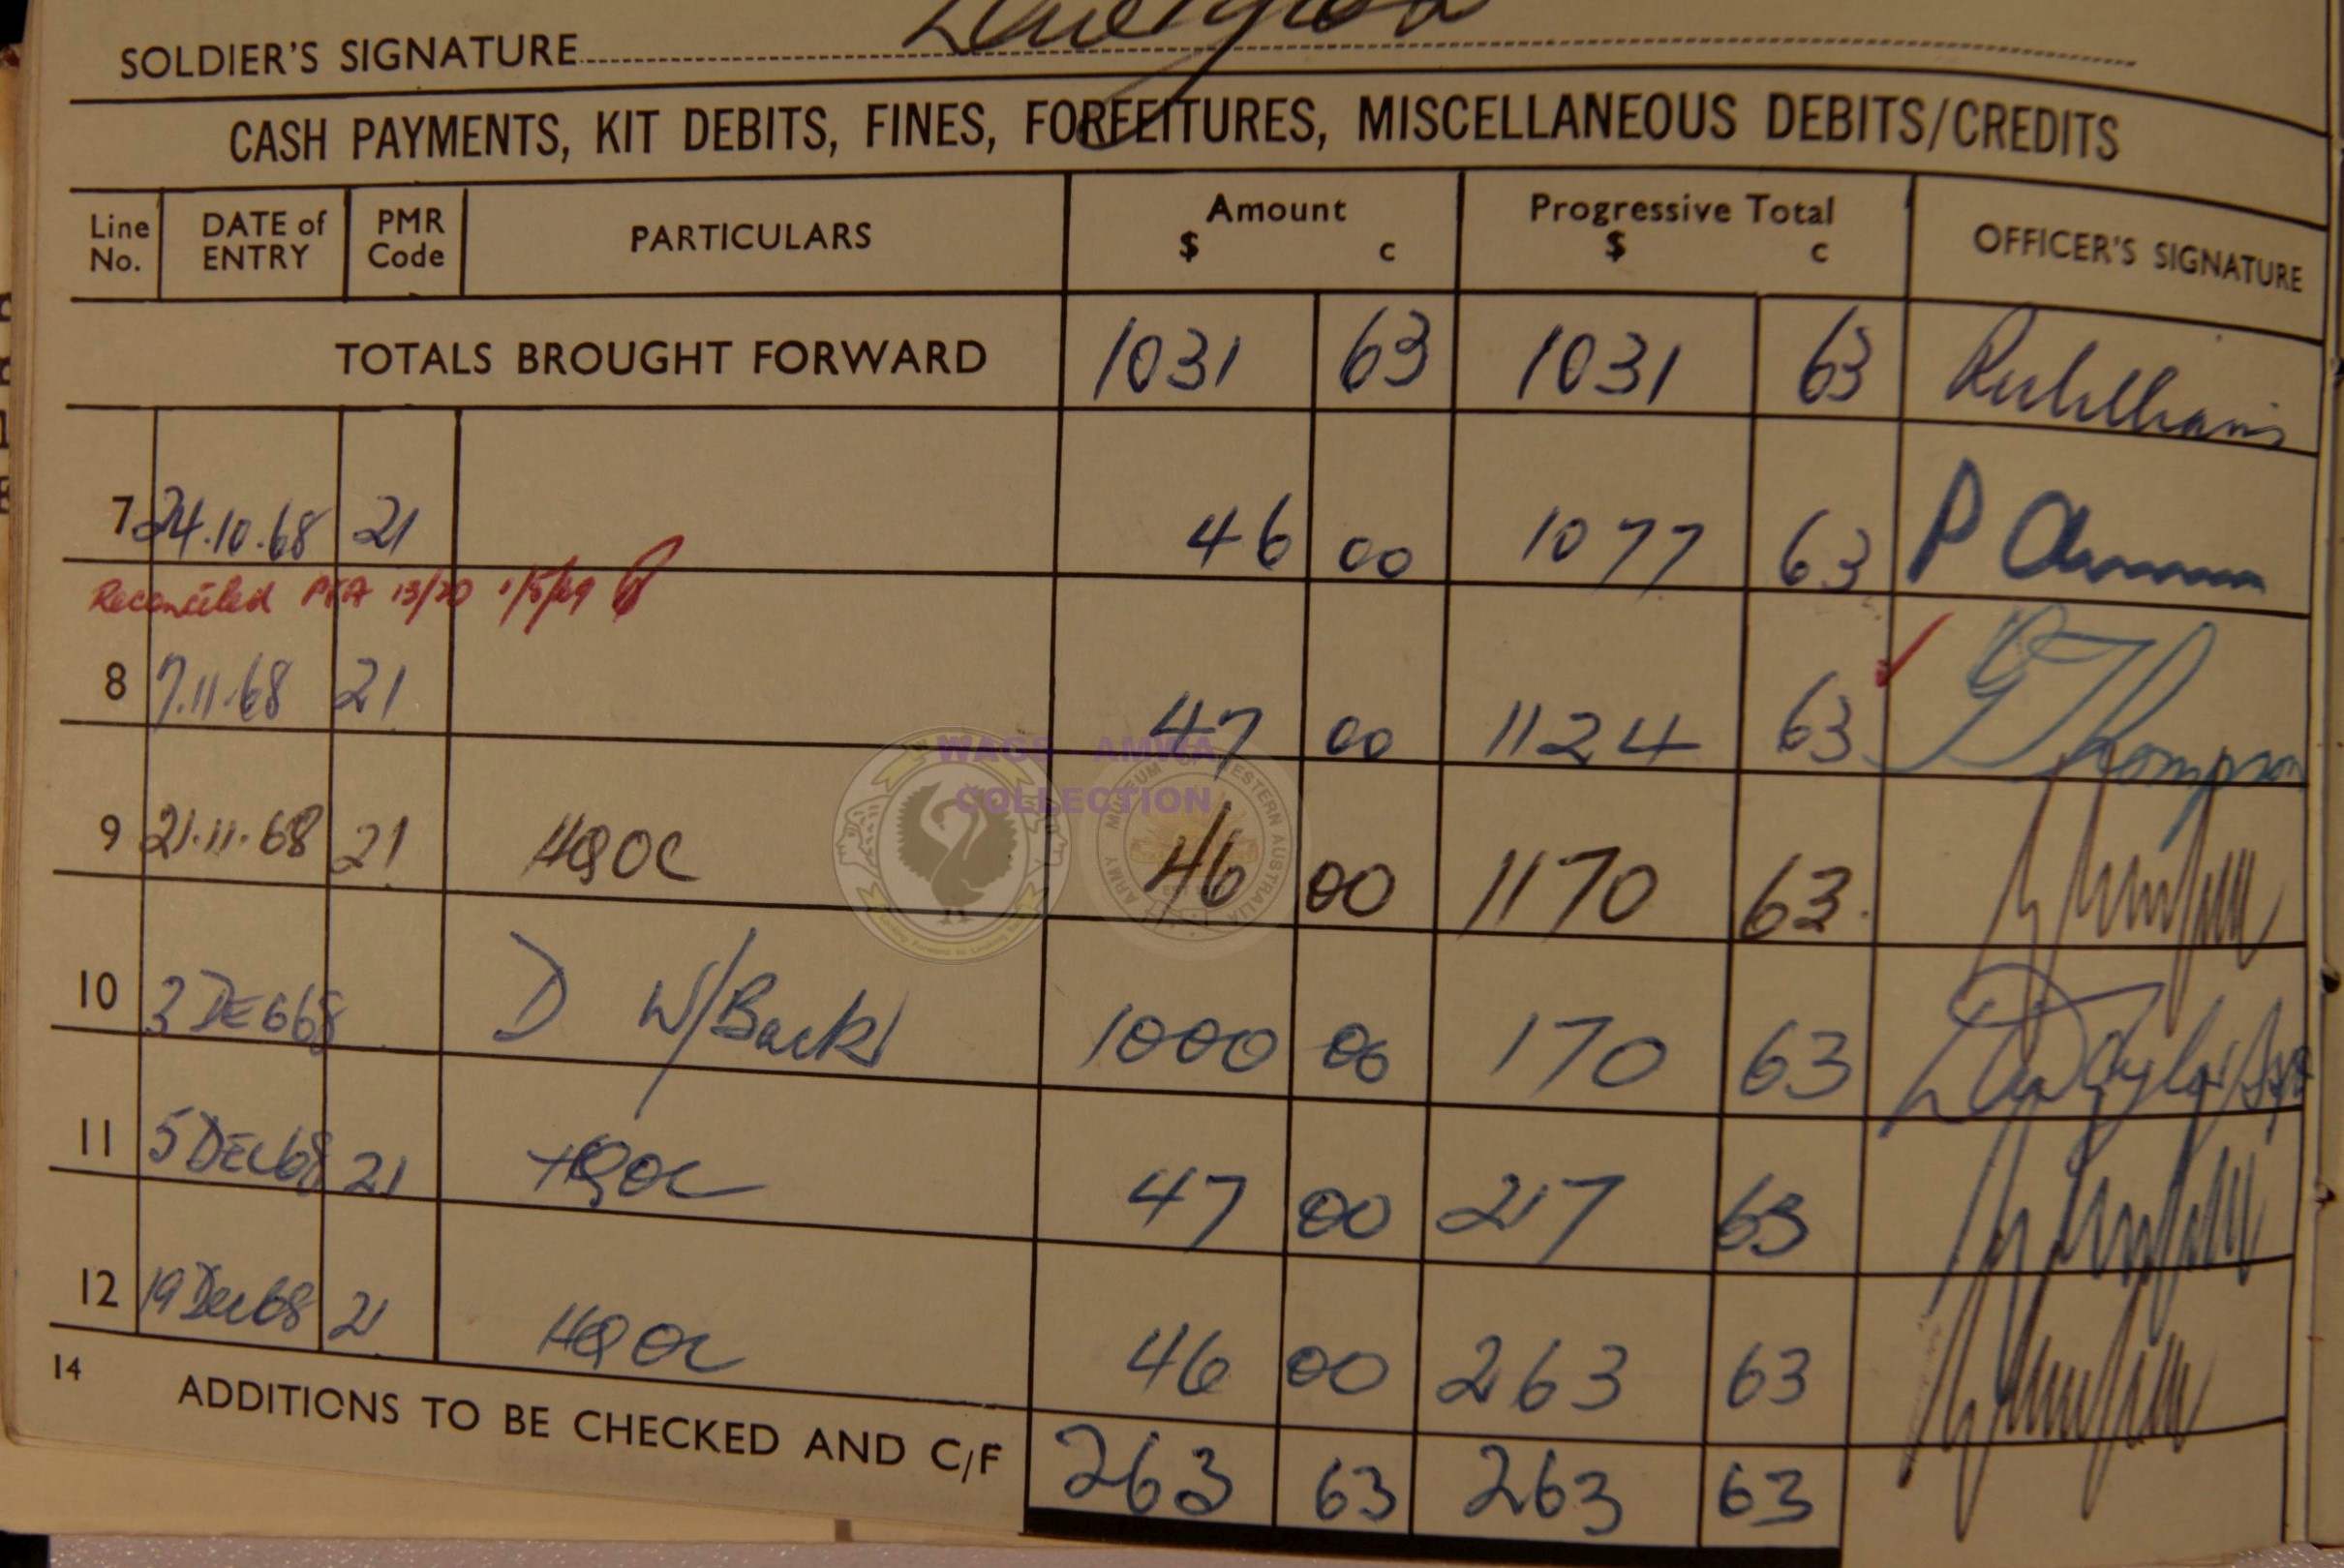 SOLDIER'S SIGNATURE
CASH PAYMENTS, KIT DEBITS, FINES, FORFEITURES, MISCELLANEOUS DEBITS/CREDITS
Line No. DATE of ENTRY PMR Code PARTICULARS Amount $ c Progressive Total $ c OFFICER'S SIGNATURE
TOTALS BROUGHT FORWARD 1031 63 1031 63
7 24.10.68 21 46 00 1077 63 P
Reconciled 13/20 1/5/69
8 7.11.68 21 47 00 1124 63 Thompson
WAGS - AMWA
COLLECTION
9 21.11.68 21 HQOC 46 00 1170 63
10 3 DEC 68 D W/Back 1000 00 170 63
11 5 DEC 68 21 HQOC 47 00 217 63
12 19 Dec 68 21 HQOC 46 00 263 63
14 ADDITIONS TO BE CHECKED AND C/F 263 63 263 63